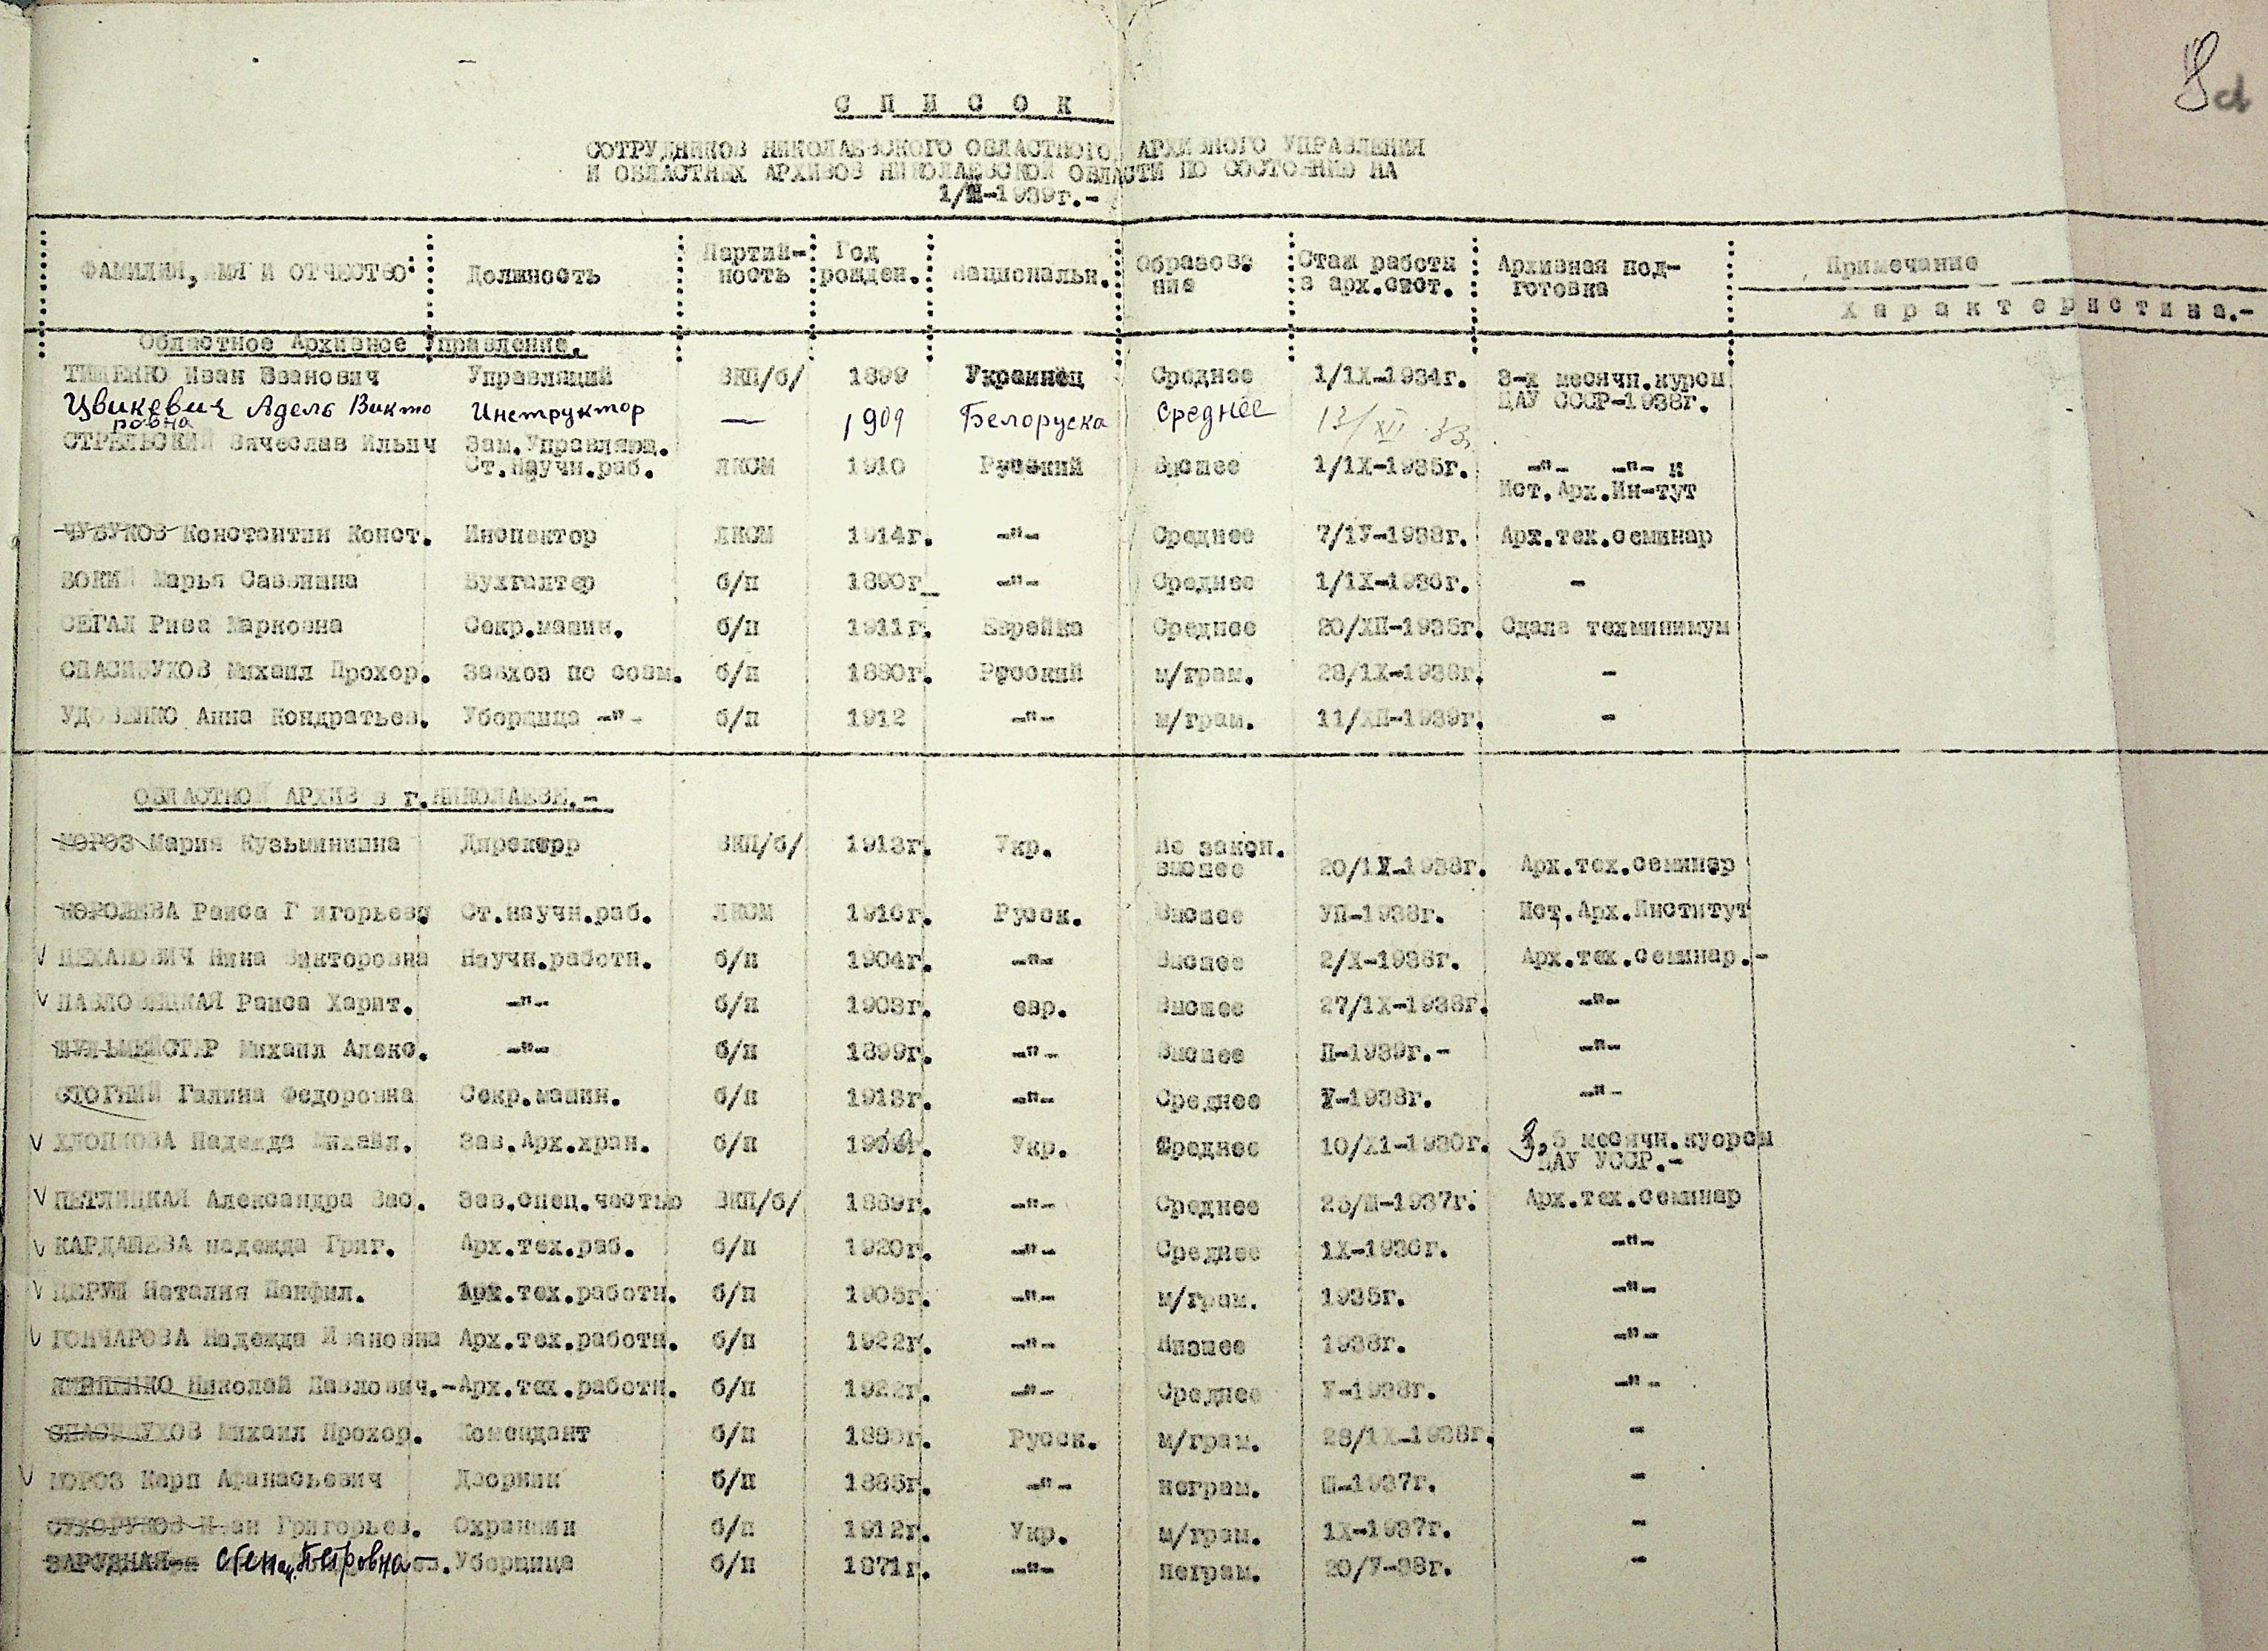 С П И С О К
СОТРУДНИКОВ НИКОЛАЕВСКОГО ОБЛАСТНОГО АРХИВНОГО УПРАВЛЕНИЯ
И ОБЛАСТНЫХ АРХИВОВ НИКОЛАЕВСКОЙ ОБЛАСТИ ПО СОСТОЯНИЮ НА
1/Ш-1939г.-
ФАМИЛИЯ, ИМЯ И ОТЧЕСТВО Должность Партий-ность Год рожден. Национальн. Образова ние Стаж работы в арх.сист. Архивная под-готовка Примечание
Х а р а к т е р и с т и к а.-
Областное Архивное Управление.
ТИЩЕНКО Иван Иванович Управляющий ВКП/б/ 1899 Украинец Среднее 1/1Х-1934г. 3-х месячн.курсы
ЦАУ СССР-1938г.
Цвикевич Адель Викто Инструктор — 1909 Белоруска Среднее 13/XII-33
ровна
СТРЕЛЬСКИЙ Вячеслав Ильич Зам.Управляющ.
Ст.научн.раб. ЛКСМ 1910 Русский Высшее 1/1Х-1935г. -"- -"- и
Ист.Арх.Ин-тут
ЧУБУКОВ Константин Конст. Инспектор ЛКСМ 1914г. -"- Среднее 7/1У-1938г. Арх.тех.семинар
Марья Саввишна Бухгалтер б/п 1890г -"- Среднее 1/1Х-1936г. -
СЕГАЛ Рива Марковна Секр.машин. б/п 1911г. Еврейка Среднее 20/ХП-1935г. Сдала техминимум
СПАСИБУХОВ Михаил Прохор. Завхоз по совм. б/п 1880г. Русский м/грам. 28/1Х-1938г. -
УДОВЕНКО Анна Кондратьев. Уборщица -"- б/п 1912 -"- м/грам. 11/ХП-1939г. -
ОБЛАСТНОЙ АРХИВ в г.НИКОЛАЕВЕ.-
МОРОЗ Мария Кузьминишна Директор ВКП/б/ 1913г. Укр. Не закон.
высшее 20/1У-1938г. Арх.тех.семинар
Раиса Г игорьевн Ст.научн.раб. ЛКСМ 1916г. Русск. Высшее УП-1938г. Ист.Арх.Институт
ЦЕХАНОВИЧ Нина Викторовна Научн.работн. б/п 1904г. -"- Высшее 2/Х-1936г. Арх.тех.семинар.-
ПАВЛОВИЦКАЯ Раиса Харит. -"- б/п 1903г. евр. Высшее 27/1Х-1938г. -"-
ШУЛЬМЕЙСТЕР Михаил Алекс. -"- б/п 1899г. -"- Высшее П-1939г.- -"-
СТОГНИЙ Галина Федоровна Секр.машин. б/п 1918г. -"- Среднее У-1938г. -"-
ХЛОПКОВА Надежда Михайл. Зав.Арх.хран. б/п Укр. Среднее 10/Х1-1930г. 3,5 месячн.куорсы
ЦАУ УССР.-
ПЕТЛИЦКАЯ Александра Вас. Зав.спец.частью ВКП/б/ 1889г. -"- Среднее 28/Ш-1937г. Арх.тех.семинар
КАРДАШЕВА надежда Григ. Арх.тех.раб. б/п 1920г. -"- Среднее 1Х-1936г. -"-
Наталия Панфил. Арх.тех.работн. б/п 1905г. -"- м/грам. 1935г. -"-
ГОНЧАРОВА Надежда Ивановна Арх.тех.работн. б/п 1922г. -"- Низшее 1938г. -"-
Николай Павлович.-Арх.тех.работн. б/п 1922г. -"- Среднее У-1938г. -"-
СПАСИБУХОВ Михаил Прохор. Комендант б/п 1880г. Русск. м/грам. 28/1Х-1938г. -
МОРОЗ Карп Афанасьевич Дворник б/п 1885г. -"- неграм. Ш-1937г. -
СУХОРУКОВ Иван Григорьев. Охранник б/п 1912г. Укр. м/грам. 1Х-1937г. -
ЗАРУДНАЯ Петровна Уборщица б/п 1871г. -"- неграм. 20/У-38г. -